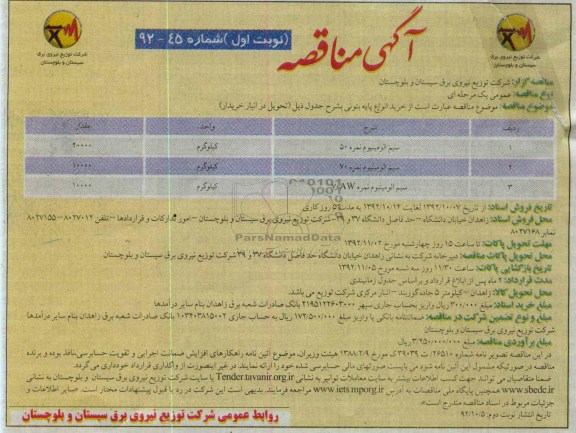 آگهی مناقصه
(نوبت اول) شماره ۴۵ - ۹۲
شرکت توزیع نیروی برق
سیستان و بلوچستان
شرکت توزیع نیروی برق
سیستان و بلوچستان
مناقصه گزار: شرکت توزیع نیروی برق سیستان و بلوچستان
نوع مناقصه: عمومی یک مرحله ای
موضوع مناقصه: موضوع مناقصه عبارت است از خرید انواع پایه بتونی بشرح جدول ذیل (تحویل در انبار خریدار)
ردیف شرح واحد مقدار
۱ سیم آلومینیوم نمره ۵۰ کیلوگرم ۲۰۰۰۰
۲ سیم آلومینیوم نمره ۷۰ کیلوگرم ۱۰۰۰۰
۳ سیم آلومینیوم نمره AW کیلوگرم ۱۰۰۰۰
ParsNamadData
تاریخ فروش اسناد: از تاریخ ۱۳۹۲/۱۰/۰۷ لغایت ۱۳۹۲/۱۰/۱۴ به مدت ۵ روز کاری
محل فروش اسناد: زاهدان خیابان دانشگاه – حد فاصل دانشگاه ۳۷ و ۳۹ – شرکت توزیع نیروی برق سیستان و بلوچستان – امور تدارکات و قراردادها – تلفن ۸۰۲۷۰۱۲ – ۸۰۲۷۱۵۵
نمابر ۸۰۲۷۱۶۸
مهلت تحویل پاکات: تا ساعت ۱۵ روز چهارشنبه مورخ ۱۳۹۲/۱۱/۰۲
محل تحویل پاکات مناقصه: دبیرخانه شرکت به نشانی زاهدان خیابان دانشگاه حد فاصل دانشگاه ۳۷ و ۳۹ شرکت توزیع نیروی برق سیستان و بلوچستان
تاریخ بازگشایی پاکات: ساعت ۱۱/۳۰ روز سه شنبه مورخ ۱۳۹۲/۱۱/۰۵
مدت قرارداد: ۲ ماه پس از ابلاغ قرارداد و براساس جدول زمانبندی
محل تحویل کالا: زاهدان – کیلومتر ۵ جاده گوربند – انبار مرکزی شرکت توزیع می باشد.
مبلغ خرید اسناد: مبلغ ۳۰۰/۰۰۰ ریال واریز بحساب جاری سپهر ۲۱۹۵۱۲۲۶۰۳۰۰۰ بانک صادرات شعبه برق زاهدان بنام سایر درآمدها
مبلغ و نوع تضمین شرکت در مناقصه: ضمانتنامه بانکی یا واریز مبلغ ۱۷۲/۵۰۰/۰۰۰ ریال به حساب جاری ۱۰۳۴۰۳۸۱۵۰۰۲ بانک صادرات شعبه برق زاهدان بنام سایر درآمدها
شرکت توزیع نیروی برق سیستان و بلوچستان
مبلغ برآوردی مناقصه: مبلغ ۳/۲۵۰/۰۰۰/۰۰۰ ریال
در این مناقصه تصویر نامه شماره ۲۶۵۱۰/ت ۳۹۰۳۹ ک مورخ ۱۳۸۸/۲/۹ هیئت وزیران، موضوع آئین نامه راهکارهای افزایش ضمانت اجرایی و تقویت حسابرسی نافذ بوده و برنده
مناقصه در صورتیکه مشمول این آئین نامه شود می بایست صورتهای مالی حسابرسی شده خود را ارائه نمایند، در غیر اینصورت از واگذاری قرارداد خودداری می گردد.
ضمناً متقاضیان می توانند جهت کسب اطلاعات بیشتر به سایت معاملات توانیر به نشانی Tender.tavanir.org.ir یا سایت شرکت توزیع نیروی برق سیستان و بلوچستان به نشانی
www.sbedc.ir همچنین پایگاه ملی مناقصات به آدرس www.iets.mporg.ir مراجعه فرمایند. بدیهی است این شرکت در رد یا قبول پیشنهادات مختار است. سایر اطلاعات و
جزئیات مربوط در اسناد مناقصه مندرج است.
تاریخ انتشار نوبت دوم: ۹۲/۱۰/۵
روابط عمومی شرکت توزیع نیروی برق سیستان و بلوچستان